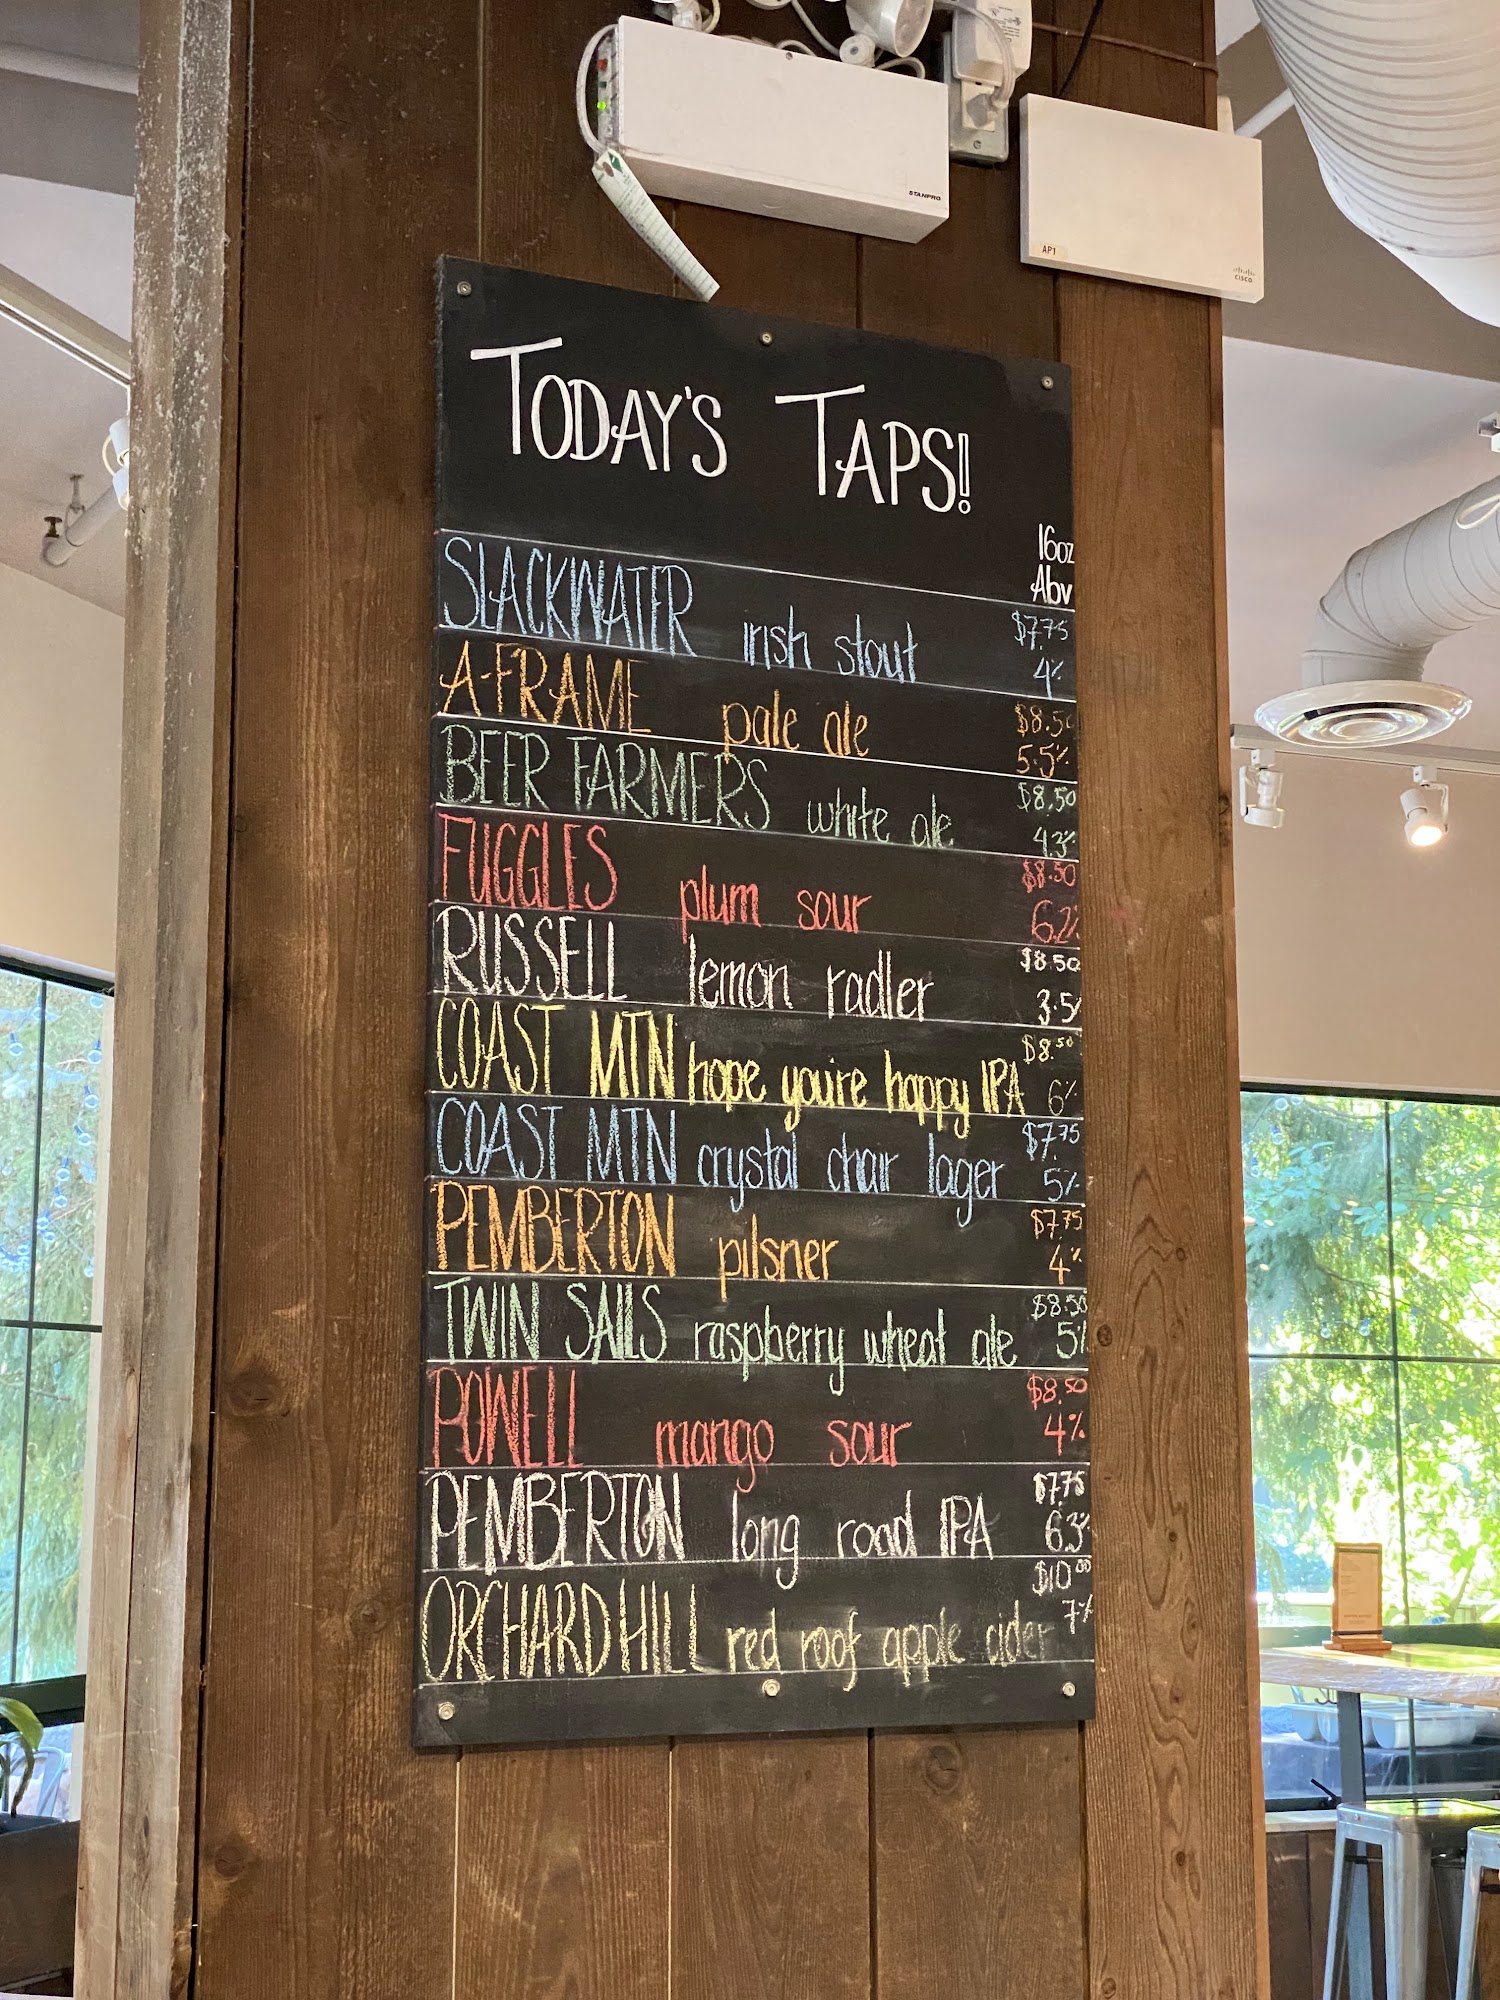 STANPRO
AP1
CISCO
TODAY'S TAPS!
16oz
Abv
SLACKWATER irish stout $7.75
4%
A-FRAME pale ale $8.50
5.5%
BEER FARMERS white ale $8.50
4.3%
FUGGLES plum sour $8.50
6.2%
RUSSELL lemon radler $8.50
3.5%
COAST MTN hope you're happy IPA $8.50
6%
COAST MTN crystal chair lager $7.75
5%
PEMBERTON pilsner $7.75
4%
TWIN SAILS raspberry wheat ale $8.50
5%
POWELL mango sour $8.50
4%
PEMBERTON long road IPA $7.75
6.3%
ORCHARD HILL red roof apple cider $10.00
7%